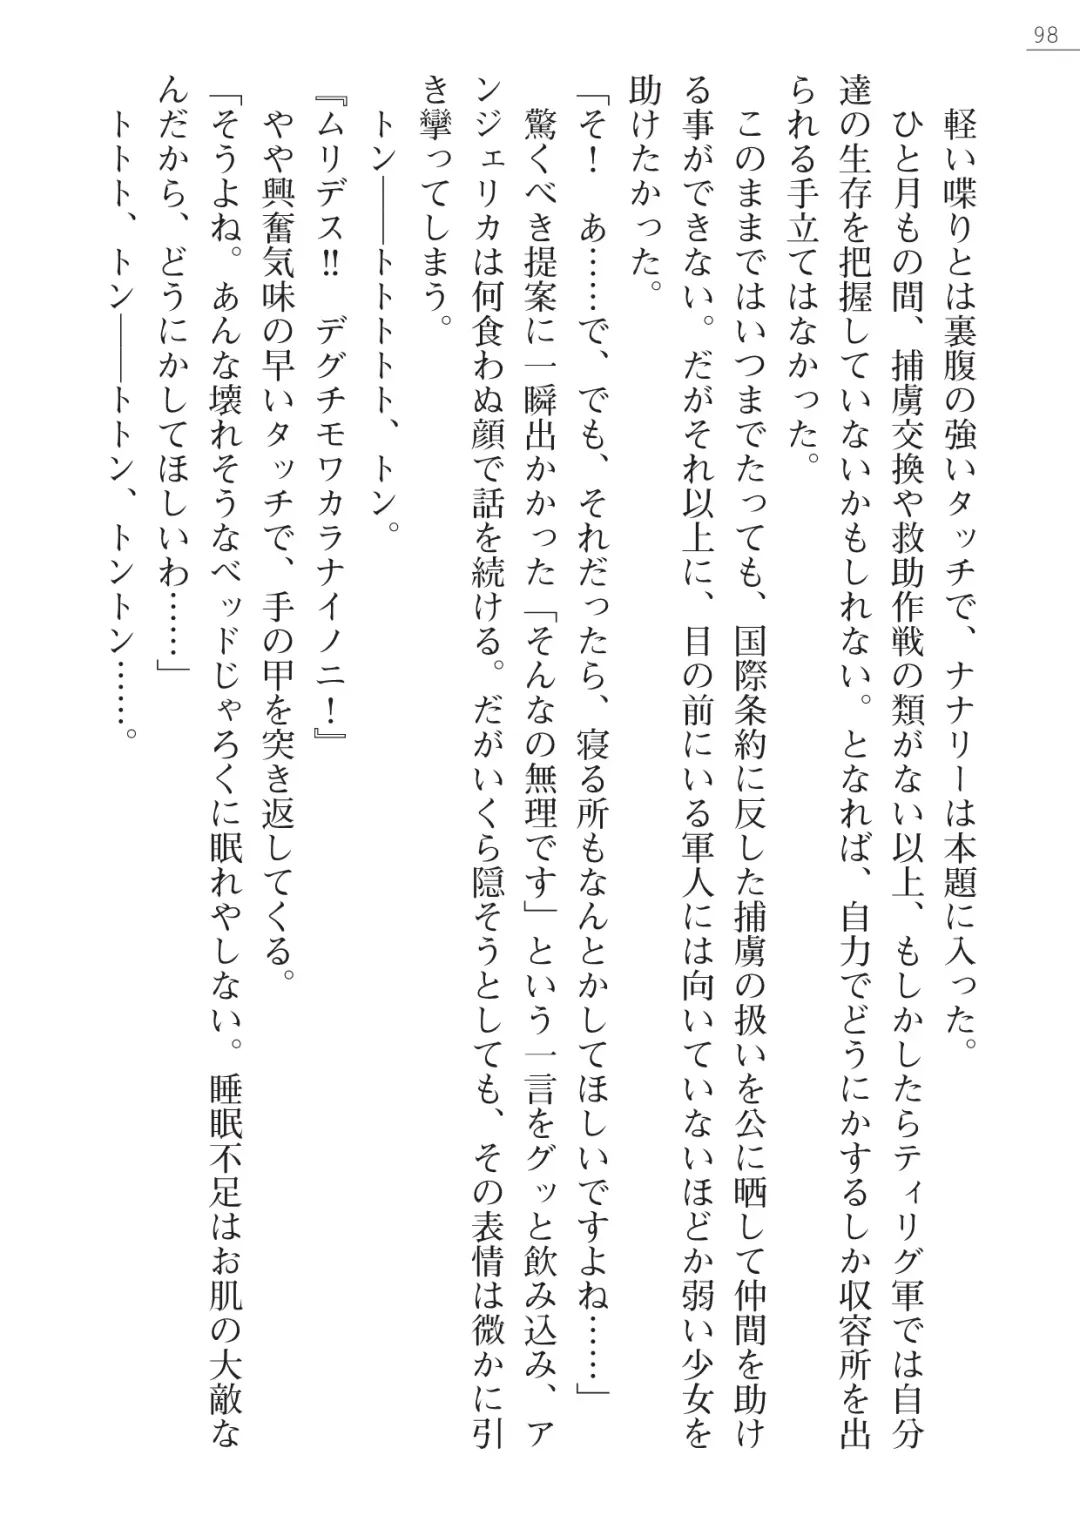 98
軽い喋りとは裏腹の強いタッチで、ナナリーは本題に入った。
ひと月もの間、捕虜交換や救助作戦の類がない以上、もしかしたらティリグ軍では自分
達の生存を把握していないかもしれない。となれば、自力でどうにかするしか収容所を出
られる手立てはなかった。
このままではいつまでたっても、国際条約に反した捕虜の扱いを公に晒して仲間を助け
る事ができない。だがそれ以上に、目の前にいる軍人には向いていないほどか弱い少女を
助けたかった。
「そ！　あ……で、でも、それだったら、寝る所もなんとかしてほしいですよね……」
驚くべき提案に一瞬出かかった「そんなの無理です」という一言をグッと飲み込み、ア
ンジェリカは何食わぬ顔で話を続ける。だがいくら隠そうとしても、その表情は微かに引
き攣ってしまう。
トン――トトトトト、トン。
『ムリデス‼　デグチモワカラナイノニ！』
やや興奮気味の早いタッチで、手の甲を突き返してくる。
「そうよね。あんな壊れそうなベッドじゃろくに眠れやしない。睡眠不足はお肌の大敵な
んだから、どうにかしてほしいわ……」
トトト、トン――トトン、トントン……。